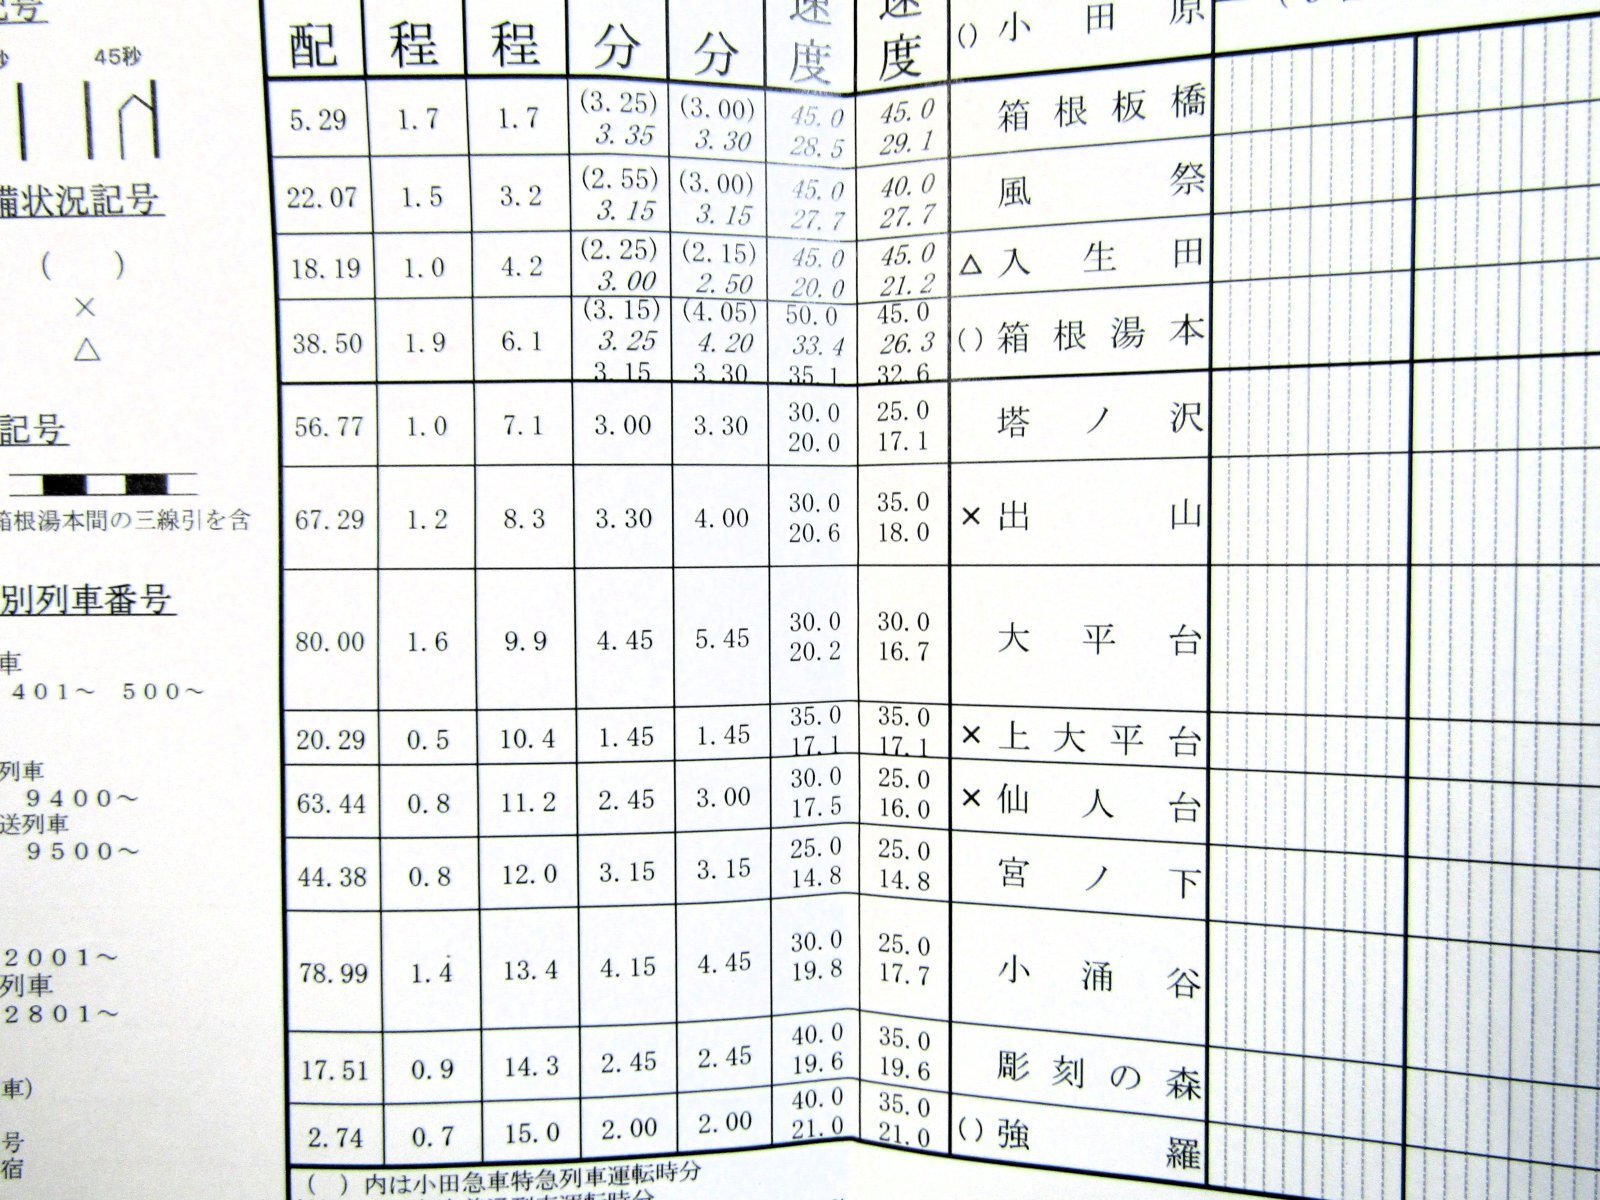 記号
45秒
備状況記号
( )
×
△
記号
箱根湯本間の三線引を含
別列車番号
車
401～ 500～
列車
9400～
送列車
9500～
2001～
列車
2801～
車)
号
宿
配 程 程 分 分 速度 速度 () 小田原
5.29 1.7 1.7 (3.25) 3.35 (3.00) 3.30 45.0 28.5 45.0 29.1 箱根板橋
22.07 1.5 3.2 (2.55) 3.15 (3.00) 3.15 45.0 27.7 40.0 27.7 風祭
18.19 1.0 4.2 (2.25) 3.00 (2.15) 2.50 45.0 20.0 45.0 21.2 △ 入生田
38.50 1.9 6.1 (3.15) 3.25 3.15 (4.05) 4.20 3.30 50.0 33.4 35.1 45.0 26.3 32.6 () 箱根湯本
56.77 1.0 7.1 3.00 3.30 30.0 20.0 25.0 17.1 塔ノ沢
67.29 1.2 8.3 3.30 4.00 30.0 20.6 35.0 18.0 × 出山
80.00 1.6 9.9 4.45 5.45 30.0 20.2 30.0 16.7 大平台
20.29 0.5 10.4 1.45 1.45 35.0 17.1 35.0 17.1 × 上大平台
63.44 0.8 11.2 2.45 3.00 30.0 17.5 25.0 16.0 × 仙人台
44.38 0.8 12.0 3.15 3.15 25.0 14.8 25.0 14.8 宮ノ下
78.99 1.4 13.4 4.15 4.45 30.0 19.8 25.0 17.7 小涌谷
17.51 0.9 14.3 2.45 2.45 40.0 19.6 35.0 19.6 彫刻の森
2.74 0.7 15.0 2.00 2.00 40.0 21.0 35.0 21.0 () 強羅
( ) 内は小田急車特急列車運転時分